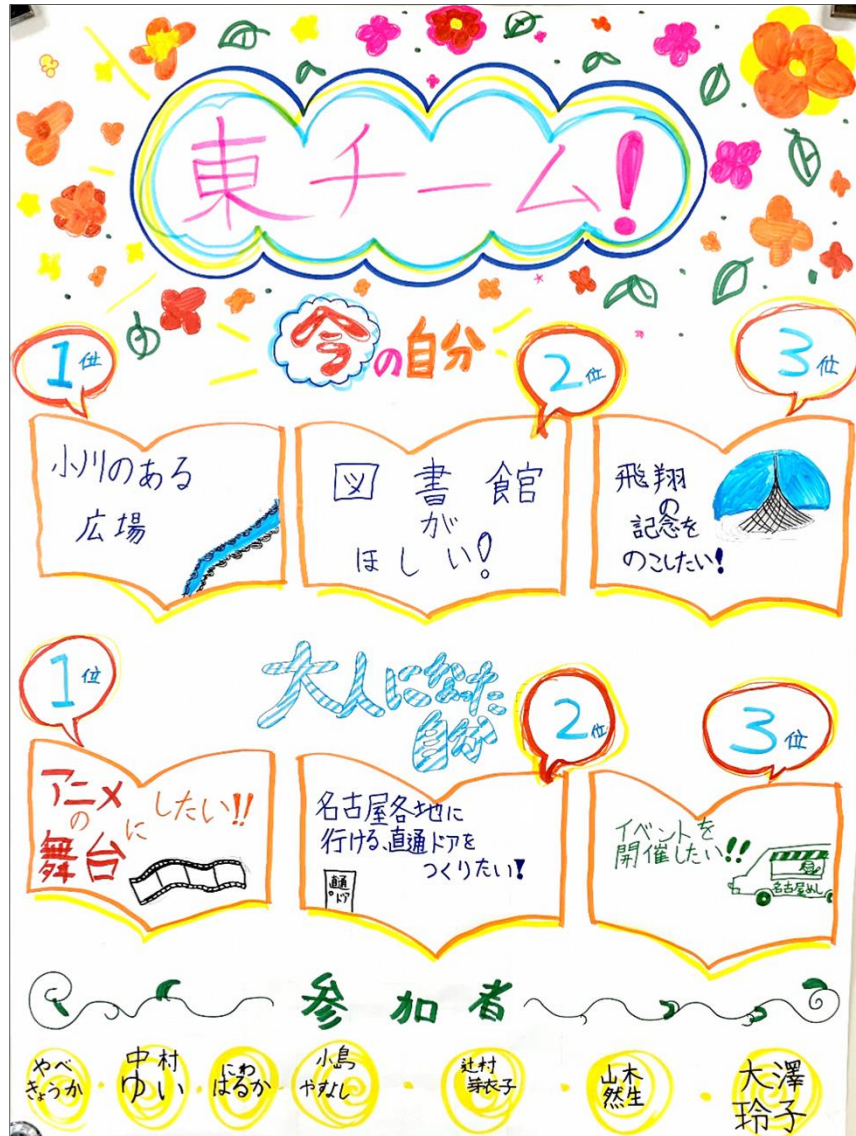 東チーム!
今の自分
1位
小川のある
広場
2位
図書館
が
ほしい!
3位
飛翔
の
記念を
のこしたい!
大人になった
自分
1位
アニメ
の
舞台にしたい!!
2位
名古屋各地に
行ける、直通ドアを
つくりたい!
直通
ドア
3位
イベントを
開催したい!!
名古屋めし
参加者
やべ
きょうか
中村
ゆい
にわ
はるか
小島
やすよし
辻村
芽衣子
山木
然生
大澤
玲子